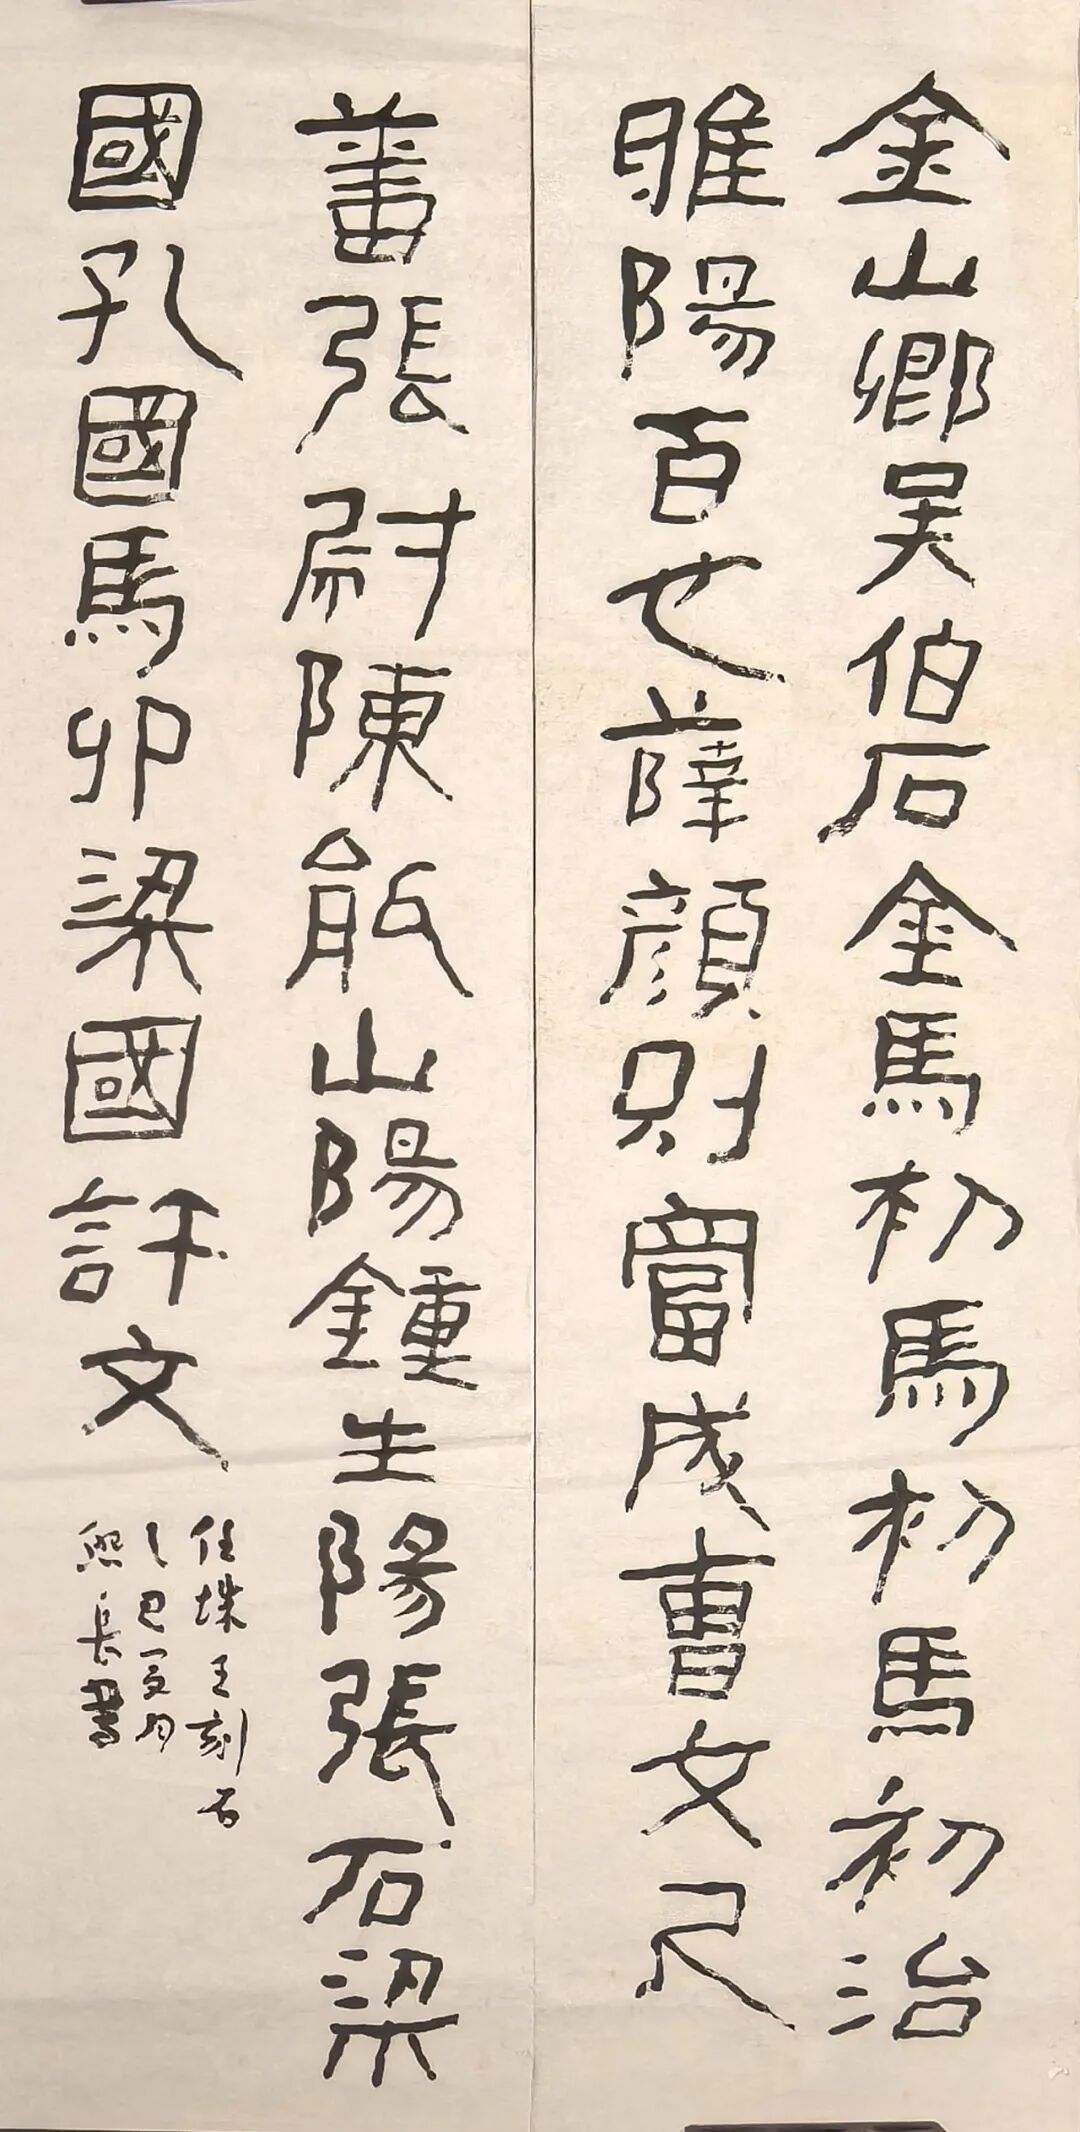 金山鄉吴伯石金馬初馬初馬初治
睢陽百也薛顏則富成曹文尺
蕃張尉陳能山陽鍾生陽張石梁
國孔國馬卯梁國許文
任城王刻石
乙巳夏月
熙長書